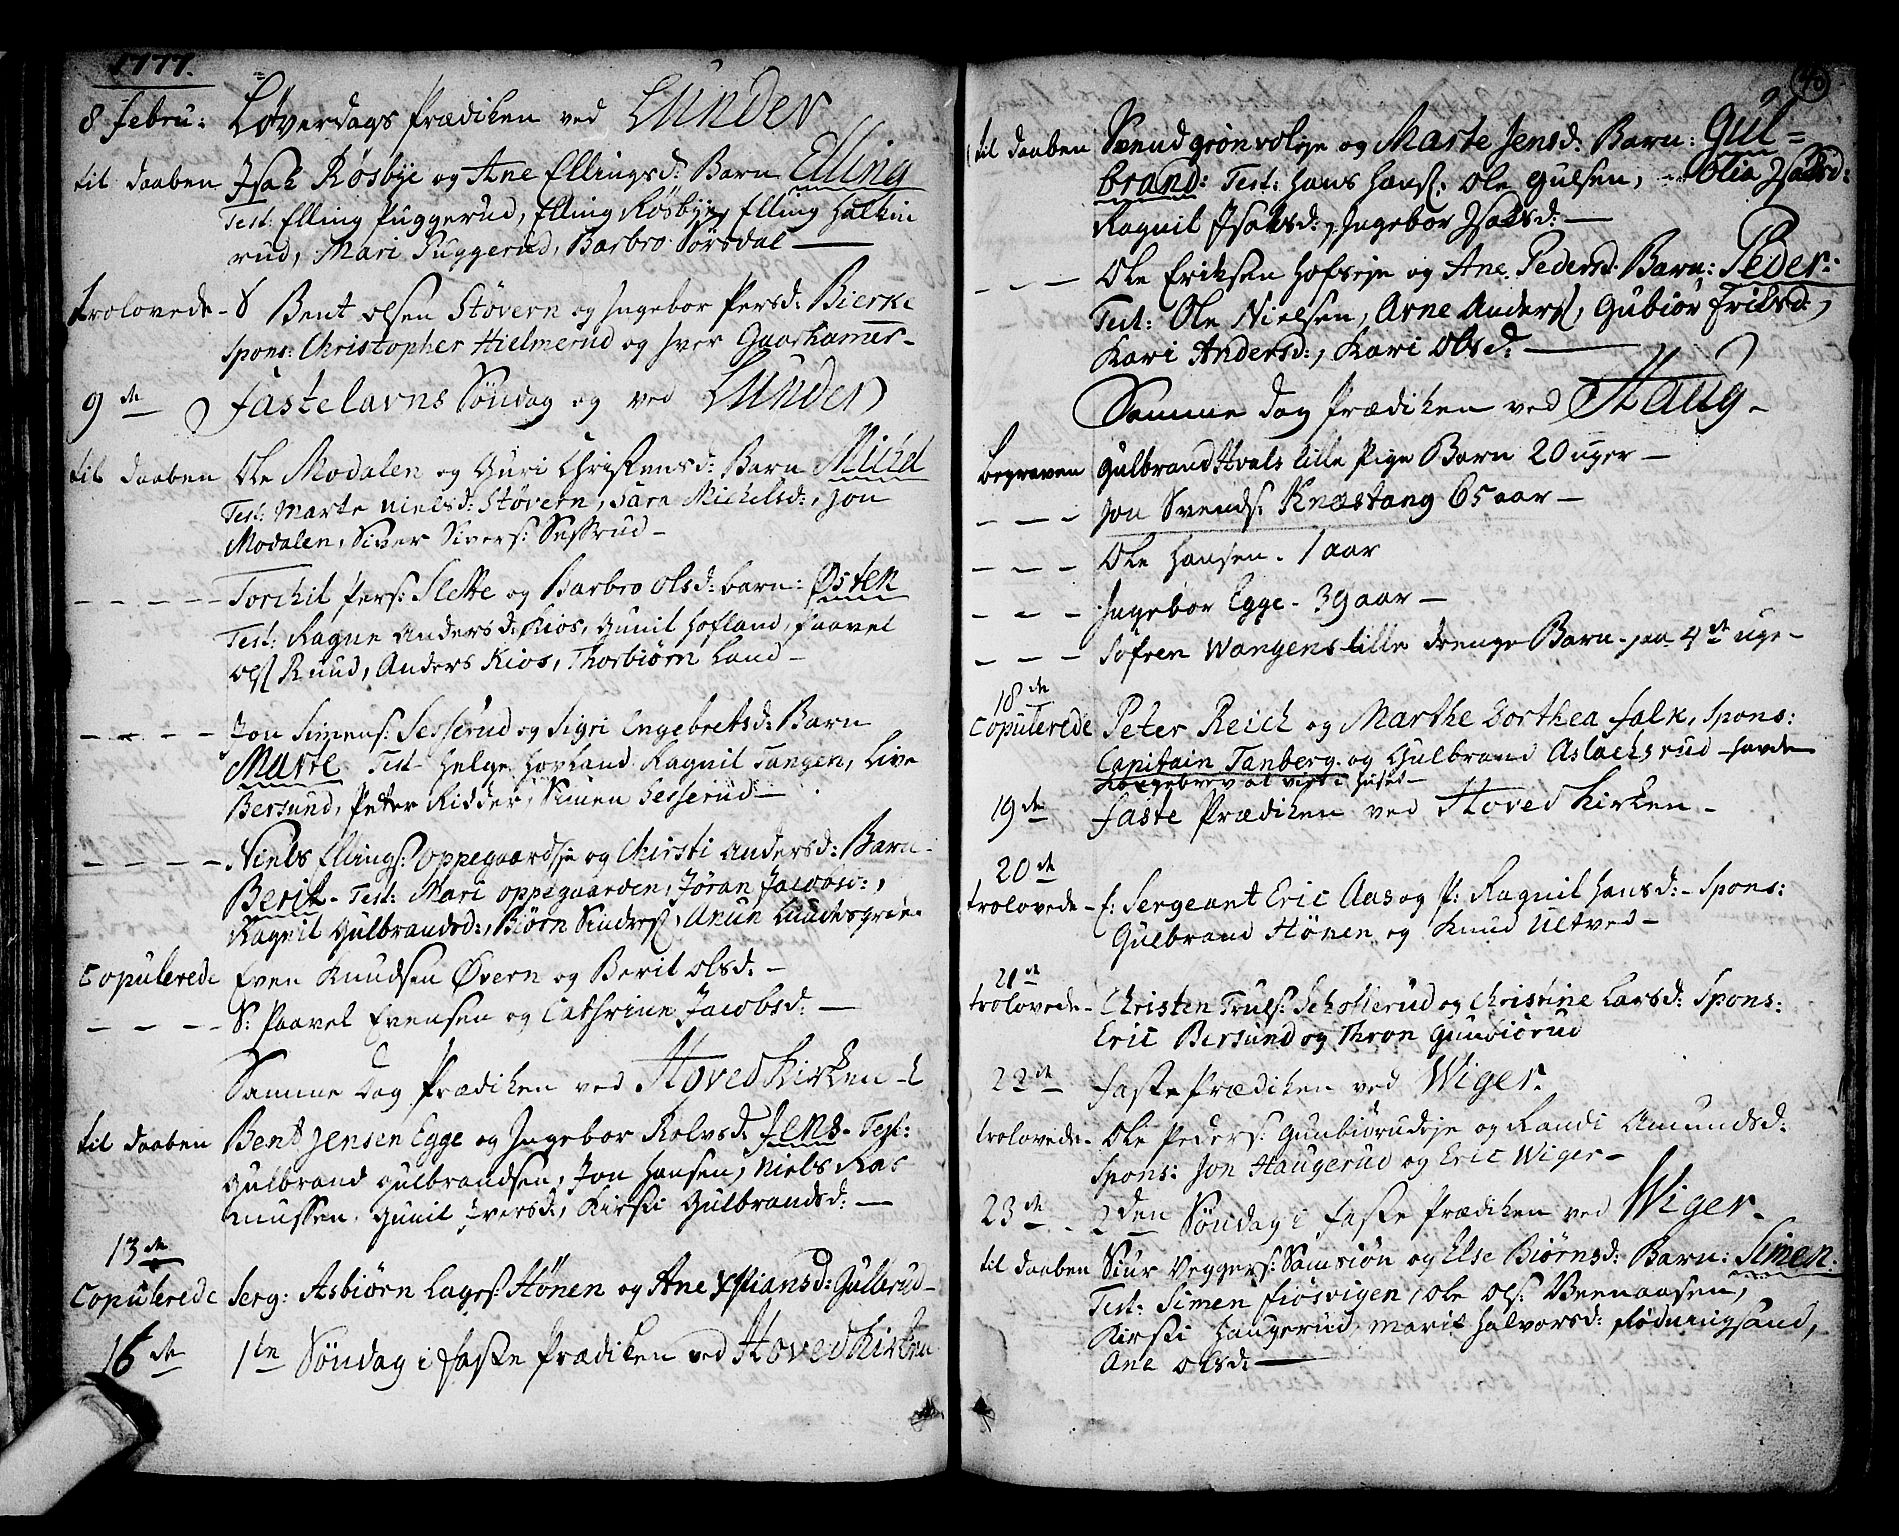 1777.
8 Febru: Løverdags Prædiken ved Lunder
til daaben Isak Røsbye og Ane Ellingsd: Barn Elling
Test: Elling Puggerud, Elling Røsbye, Elling Halkin
rud, Mari Puggerud, Barbro Sørsdal —
trolovede - S Bent Olsen Støvern og Ingebor Persd: Bierke
Spons: Christopher Hielmerud og Iver Gaarhamer-
9de Fastelavns Søndag og ved Lunder
til daaben Ole Modalen og Guri Christensd: Barn
Test: Marte Nielsd: Støvern, Sara Michelsd:, Jon
Modalen, Siver Sivers: Sessrud -
- - - - Torchil Pers: Slette og Barbro Olsd: barn: Østen
Test: Ragne Andersd: Kios, Gunil Hofland, Paavel
Ols Ruud, Anders Kios, Thorbiørn Land -
- - - - Jon Simens: Sesserud og Sigri Engebretsd: Barn
Marte Test Helge Hovland Ragnil Tangen, Live
Bersund, Peter Ridder, Simen Sesserud -
- - - - Niels Ellings: Oppegaardsje og Chirsti Andersd: Barn
Berit - Test: Mari Oppegaarden, Jøran Jacobsd:,
Ragnil Gulbrandsd:, Biørn Sindres,
Copulerede Even Knudsen Øvern og Berit Olsd: -
- - - - S: Paavel Evensen og Cathrine Jacobsd: —
Samme Dag Prædiken ved Hoved Kirken
til daaben Bent Jensen Egge og Ingebor Rolvsd: Jens - Test:
Gulbrand Gulbrandsen, Jon Hansen, Niels Ras
mussen, Gunil Iversd:, Kirsti Gulbrandsd: —
13de
Copulerede Serg: Asbiørn Lages: Hönen og Ane Xstiansd: Gullerud -
16de 1te Søndag i Faste Prædiken ved Hoved Kirken
40
til daaben Svend Grønvoleje og Marte Jensd: Barn: Gul=
brand: Test: Hans Hans:, Ole Gulsen, Olia Isaksd:
Ragnil Isaksd:, Ingebor Isaksd: —
- - - Ole Eriksen Hofseje og Ane Pedersd: Barn: Peder:
Test: Ole Nielsen, Arne Anders, Gubiør Eriksd:,
Kari Andersd:, Kari Olsd: —
Samme dag Prædiken ved Haug -
begraven Gulbrand Hvals lille Pige Barn 20 uger -
- - - Jon Svends: Knæstang 65 aar -
- - - Ole Hansen. 1 aar
- - - Ingebor Egge - 39 aar -
- - - Sofren Wangens lille drenge Barn - paa 4de uge -
18de
Copulerede Peter Reich og Marthe Dorthea Falk, Spons:
Capitain Tanberg og Gulbrand Aslachsrud - havde
Kongebrev at vies i Huset -
19de Faste Prædiken ved Hoved Kirken -
20de
trolovede - S: Sergeant Eric Aas og P: Ragnil Hansd: - Spons:
Gulbrand Hönen og Knud Ultved -
21de
trolovede - Christen Truls: Schollerud og Christine Larsd: Spons:
Eric Bersund og Thron Gunbiørud
22de Faste Prædiken ved Wiger.
trolovede - Ole Peders: Gunbiørudeje og Randi Amundsd:
Spons: Jon Haugerud og Eric Wiger -
23de - 2den Søndag i Faste Prædiken ved Wiger -
til daaben Siur Veggers: Samsiøn og Else Biørnsd: Barn: Simen:
Test: Simen Fiøsvigen, Ole Ols: Veenaasen,
Kirsti Haugerud, Marit Halvorsd: Flødningsand,
Ane Olsd: —